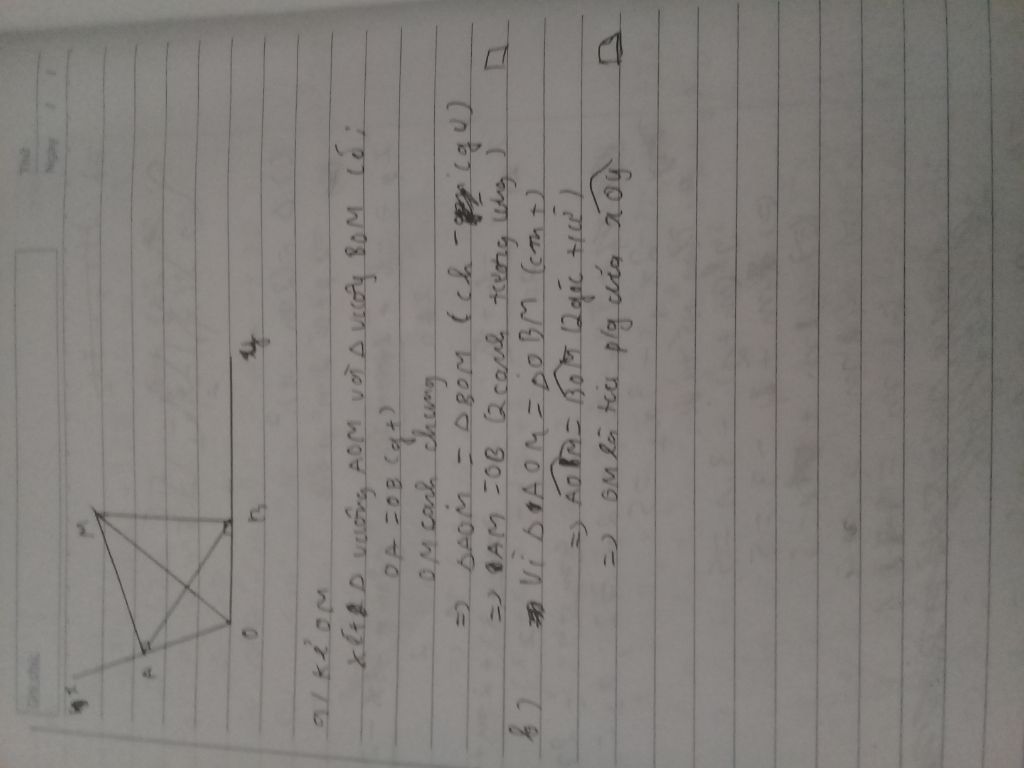 Thứ
Ngày / /
M
A
O
B
y
a) Kẻ OM
Xét Δ vuông AOM với Δ vuông BOM có:
OA = OB (gt)
OM cạnh chung
=> ΔAOM = ΔBOM (ch - cgv)
=> AM = OB (2 cạnh tương ứng) □
b) Vì ΔAOM = ΔOBM (cmt)
=> AOM = BOM (2 góc tứ)
=> OM là tia pg của xOy □